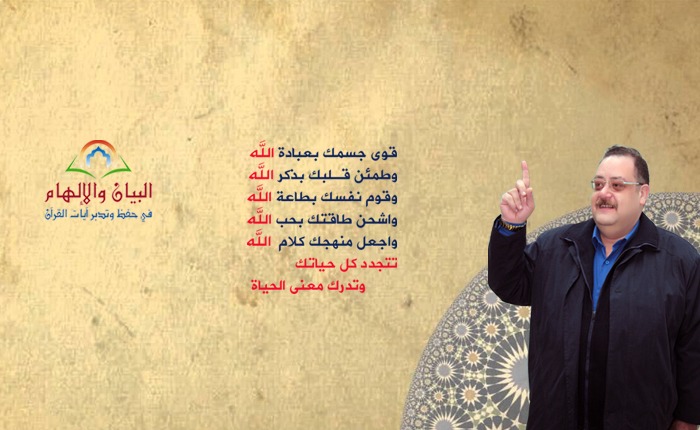 قوى جسمك بعبادة الله
وطمئن قلبك بذكر الله
وقوم نفسك بطاعة الله
واشحن طاقتك بحب الله
واجعل منهجك كلام الله
تتجدد كل حياتك
وتدرك معنى الحياة
البيان والإلهام
في حفظ وتدبر آيات القرآن